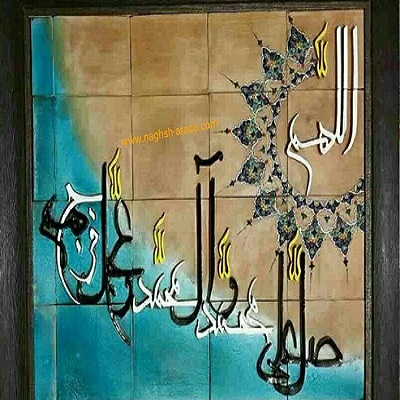 اللهم
صل علی محمد و آل محمد و عجل فرجهم
www.naghsh-arace.com